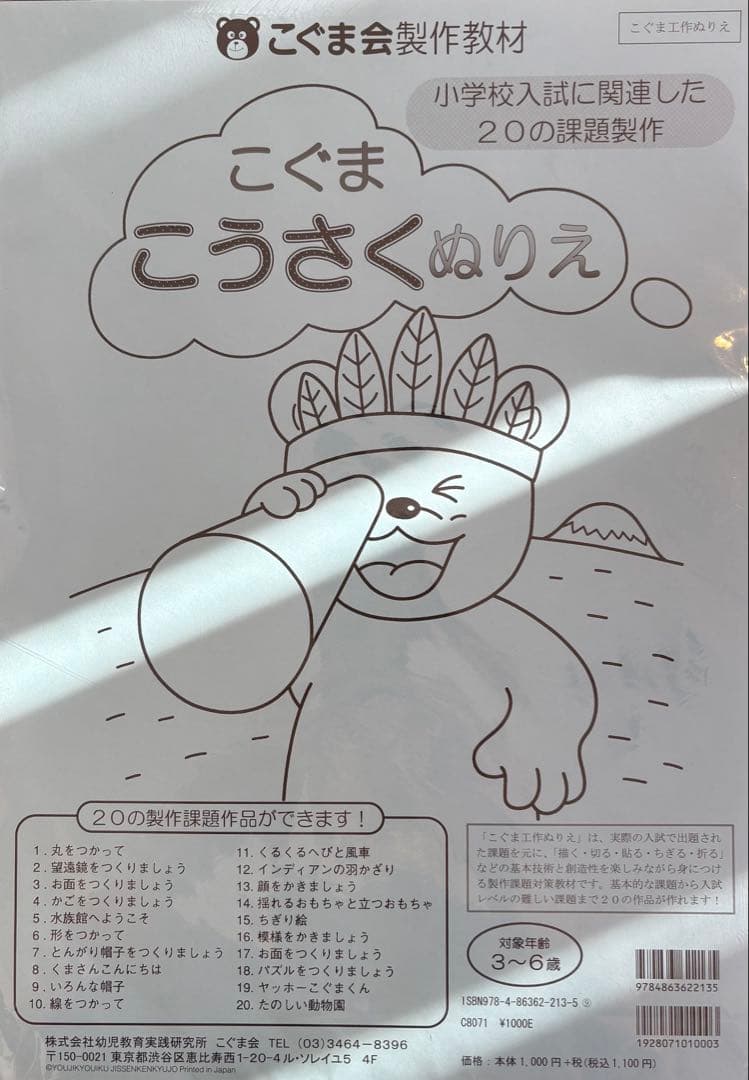 こぐま会製作教材
こぐま工作ぬりえ
小学校入試に関連した
20の課題製作
こぐま
こうさくぬりえ
20の製作課題作品ができます!
1. 丸をつかって
2. 望遠鏡をつくりましょう
3. お面をつくりましょう
4. かごをつくりましょう
5. 水族館へようこそ
6. 形をつかって
7. とんがり帽子をつくりましょう
8. くまさんこんにちは
9. いろんな帽子
10. 線をつかって
11. くるくるへびと風車
12. インディアンの羽かざり
13. 顔をかきましょう
14. 揺れるおもちゃと立つおもちゃ
15. ちぎり絵
16. 模様をかきましょう
17. お面をつくりましょう
18. パズルをつくりましょう
19. ヤッホーこぐまくん
20. たのしい動物園
「こぐま工作ぬりえ」は、実際の入試で出題され
た課題を元に、「描く・切る・貼る・ちぎる・折る」
などの基本技術と創造性を楽しみながら身につけ
る製作課題対策教材です。基本的な課題から入試
レベルの難しい課題まで20の作品が作れます!
対象年齢
3〜6歳
9784863622135
ISBN978-4-86362-213-5
C8071 ¥1000E
1928071010003
価格:本体1,000円+税(税込1,100円)
株式会社幼児教育実践研究所 こぐま会 TEL (03)3464-8396
〒150-0021 東京都渋谷区恵比寿西1-20-4ル・ソレイユ5 4F
©YOUJIKYOUIKU JISSENKENKYUJO Printed in Japan